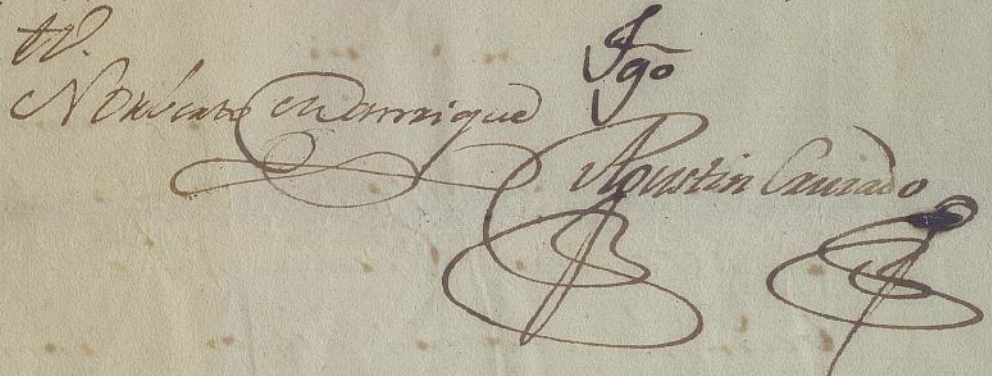 tº.
Norberto Manrique
Tgo
Agustin Cruzado